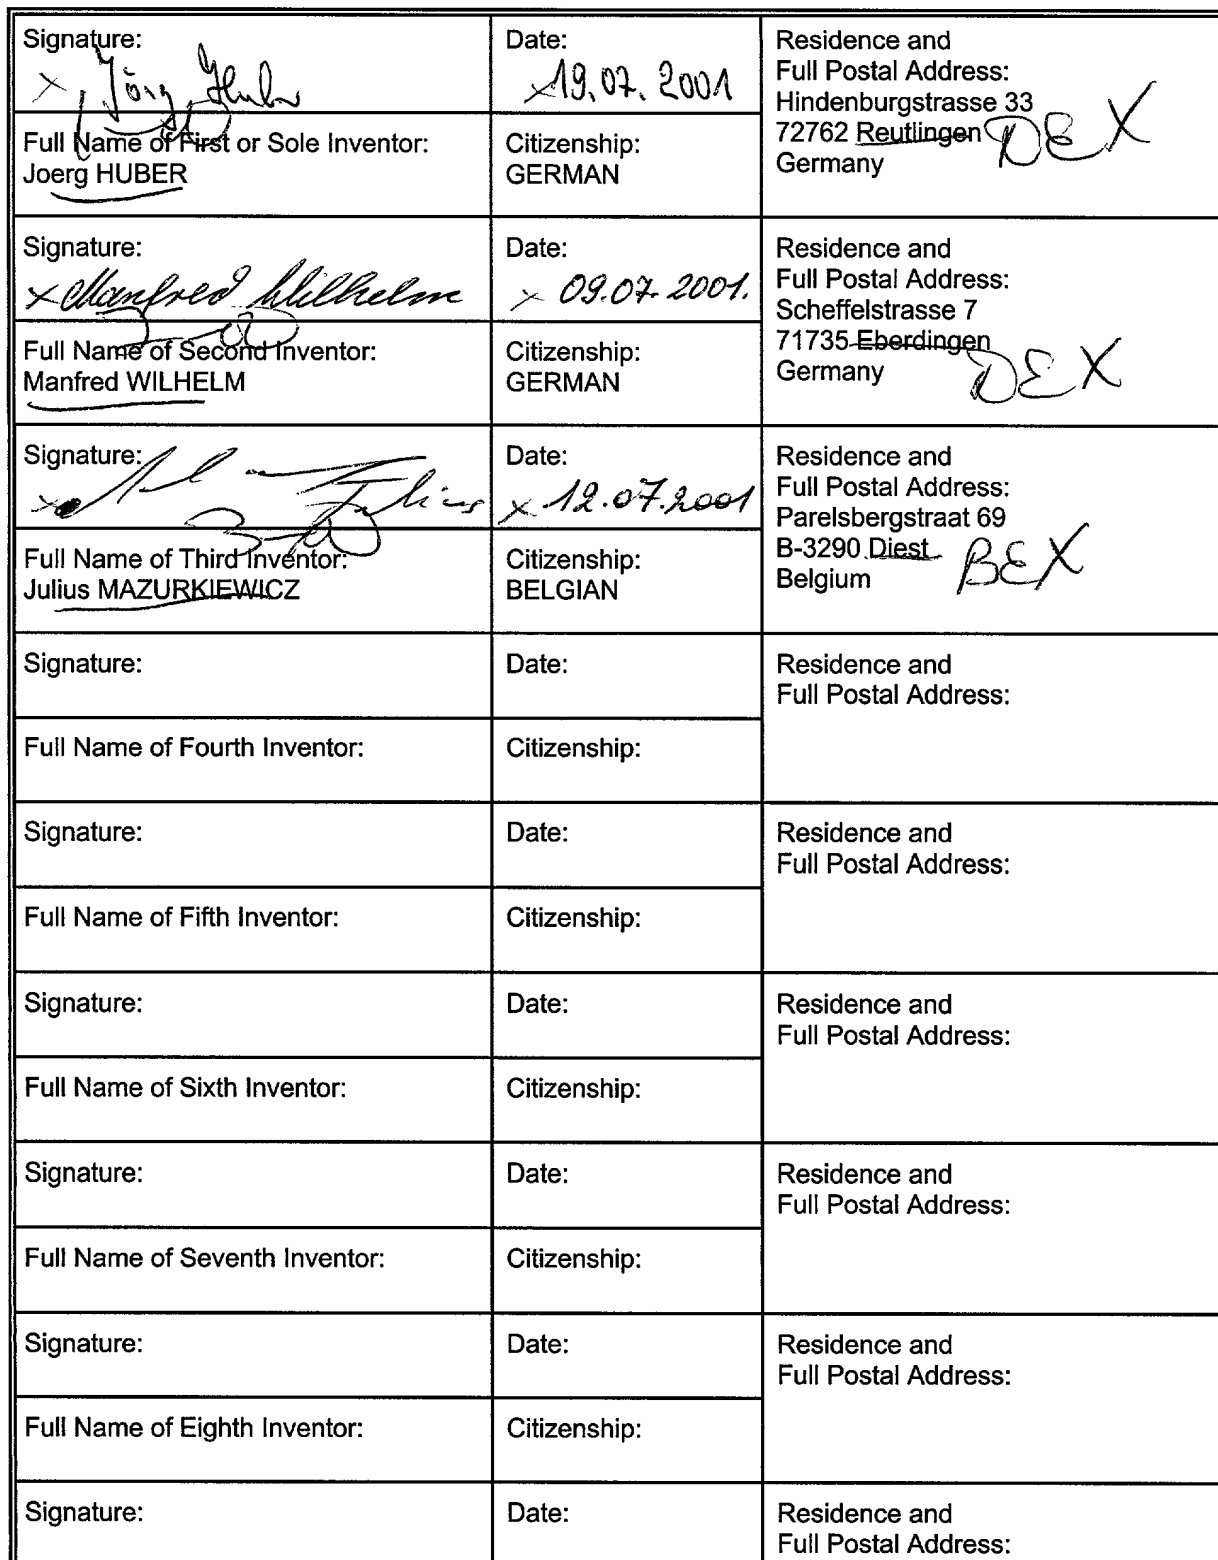 Signature:
× Jörg Huber
Date:
×19.07.2001
Residence and
Full Postal Address:
Hindenburgstrasse 33
72762 Reutlingen DEX
Germany
Full Name of First or Sole Inventor:
Joerg HUBER
Citizenship:
GERMAN
Signature:
× Manfred Wilhelm
Date:
× 09.07.2001.
Residence and
Full Postal Address:
Scheffelstrasse 7
71735 Eberdingen
Germany DEX
Full Name of Second Inventor:
Manfred WILHELM
Citizenship:
GERMAN
Signature:
× Julius
Date:
× 12.07.2001
Residence and
Full Postal Address:
Parelsbergstraat 69
B-3290 Diest
Belgium BEX
Full Name of Third Inventor:
Julius MAZURKIEWICZ
Citizenship:
BELGIAN
Signature:
Date:
Residence and
Full Postal Address:
Full Name of Fourth Inventor:
Citizenship:
Signature:
Date:
Residence and
Full Postal Address:
Full Name of Fifth Inventor:
Citizenship:
Signature:
Date:
Residence and
Full Postal Address:
Full Name of Sixth Inventor:
Citizenship:
Signature:
Date:
Residence and
Full Postal Address:
Full Name of Seventh Inventor:
Citizenship:
Signature:
Date:
Residence and
Full Postal Address:
Full Name of Eighth Inventor:
Citizenship:
Signature:
Date:
Residence and
Full Postal Address: